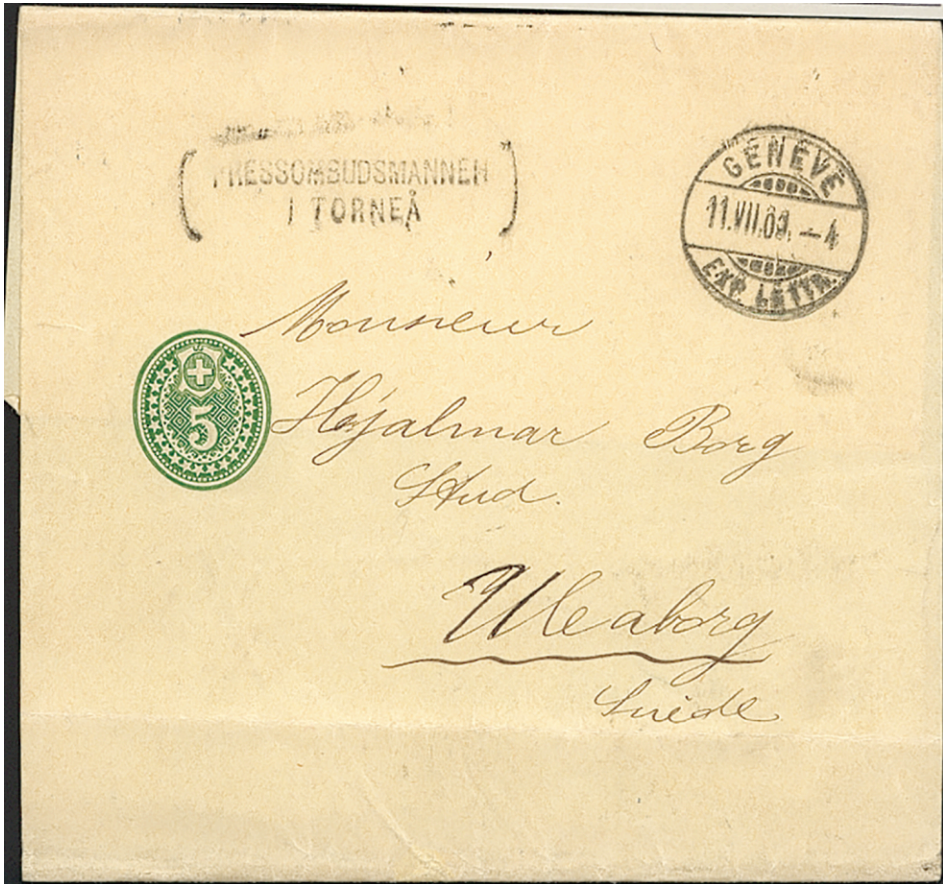 PRESSOMBUDSMANNEN
I TORNEÅ
GENÈVE
EXP. LETTR.
5
Monsieur
Hjalmar Borg
Stud.
Uleaborg
Suède